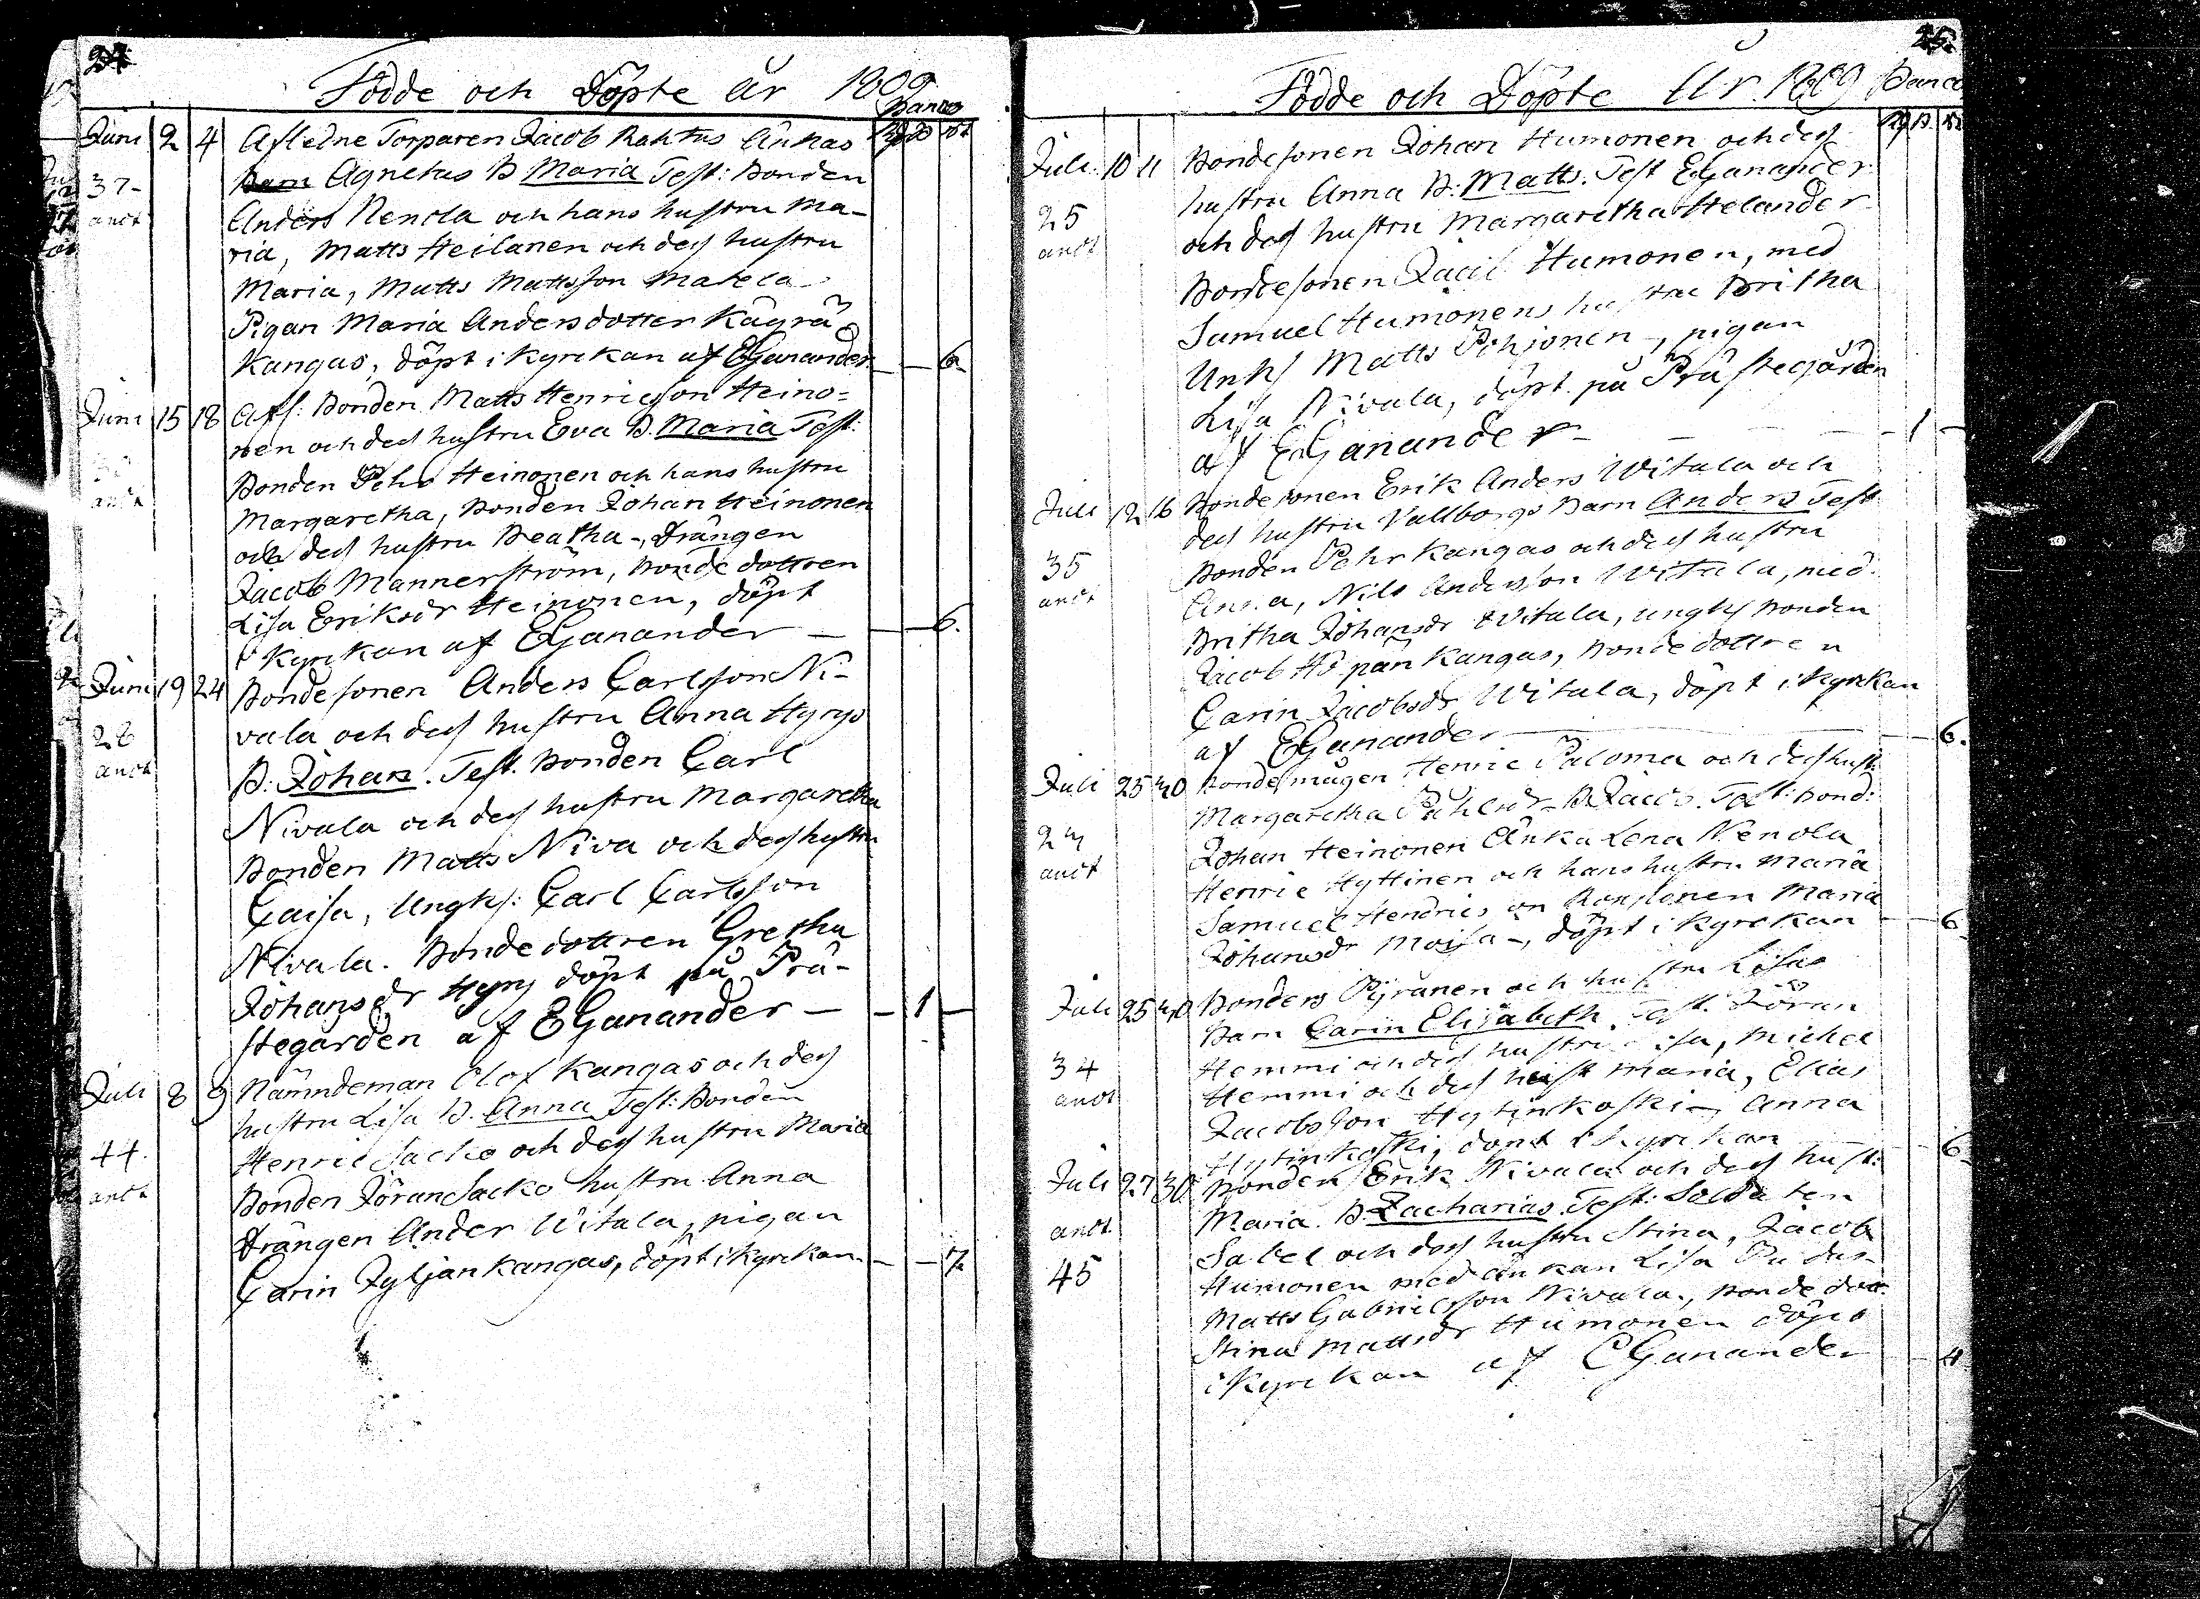 24
Födde och Döpte år 1809
Banco
Juni 2 4 Aflidne Torparen Jacob Rahkus Änkas
37
Barn Agnetas B Maria Test: Bonden
anot
Anders Nenola och hans hustru Ma-
ria, Matts Heilanen och des hustru
Maria, Matts Mattsson Matela
Pigan Maria Andersdotter Kägrä
Kangas, döpt i kyrckan af EGanander — — 6
Juni 15 18 Bonden Matts Henricsson Heino-
nen och des hustru Eva B. Maria Test:
Bonden Pehr Heinonen och hans hustru
anot
Margaretha, Bonden Johan Heinonen
och des hustru Beatha, Drängen
Jacob Mannerström, Bonde dottren
Lisa Eriksdr Heinonen, döpt
i kyrckan af EGanander — — 6.
Juni 19 24 Bondesonen Anders Carlsson Ni-
28
vala och des hustru Anna Hyrys
anot
B: Johan. Test. Bonden Carl
Nivala och des hustru Margaretha
Bonden Matts Niva och des hustru
Caisa, Ungk: Carl Carlsson
Nivala. Bonde dottren Gretha
Johansdr Hyrys döpt på Prä-
stegården af EGanander — — 1 —
Juli 8 9 Nämndeman Olof Kangas och des
hustru Lisa B. Anna Test: Bonden
44.
Henric Sacko och des hustru Maria
anot
Bonden Jöran Sacko hustru Anna
Drängen Ander Witala, pigan
Carin Zyljänkangas, döpt i kyrckan. — — 7
25.
Födde och Döpte År 1809 Banco
Juli 10 11 Bondesonen Johan Humonen och des
25
hustru Anna B: Matts. Test EGanander
anot
och des hustru Margaretha Helander
Bondesonen Jacob Humonen, med
Samuel Humonens hustru Britha
Unk Matts Pohjonen, pigan
Lisa Nivala, döpt på Prästegården
af EGanander — — 1 —
Juli 12 16 Bondesonen Erik Anders Witala och
des hustru Vallborgs Barn Anders Test
35
Bonden Pehr Kangas och des hustru
anot
Anna, Nils Andersson Witala, med
Britha Johansdr Witala, ungk Bonden
Jacob Kangas, Bonde dottren
Carin Jacobsdr Witala, döpt i kyrckan
af EGanander — 6.
Juli 25 30 Bondemågen Henric Paloma och des hust:
Margaretha B. Jacob. Test: Bond:
27
Johan Heinonen Änka Lena Nenola
anot
Henric Hyttinen och hans hustru Maria
Samuel Hendricsson Maria
Johansdr Moisa, döpt i kyrckan — 6
Juli 25 30 Bonden Pyränen och hustru Lisas
Barn Carin Elisabeth. Test. Jöran
34
Hemmi och des hustru Lisa, Michel
anot
Hemmi och des hust Maria, Elias
Jacobsson Hytinkoski, Anna
Hytinkoski, döpt i kyrckan — 6
Juli 27 30 Bonden Erik Nivala och des hust:
Maria. B. Zacharias. Test: Soldaten
anot
Sabel och des hustru Stina, Jacob
45
Humonen med änkan Lisa
Matts Gabrielsson Nivala, Bonde dott.
Stina Mattsdr Humonen döpt
i kyrckan af EGanander — 4